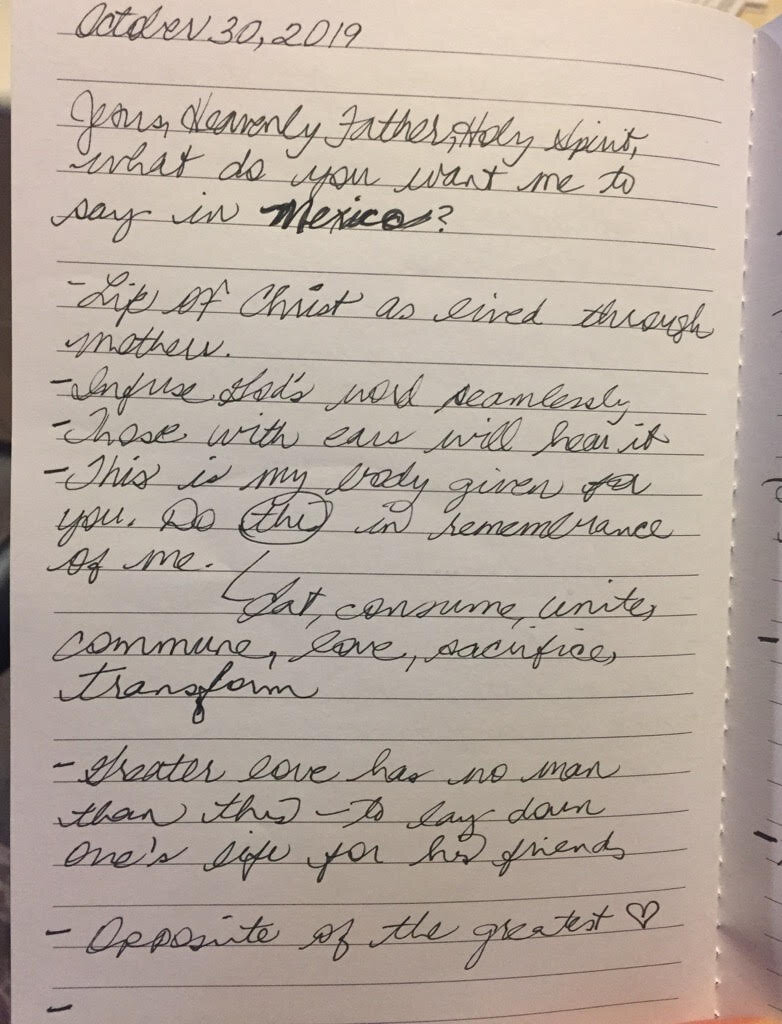 October 30, 2019
Jesus, Heavenly Father, Holy Spirit,
what do you want me to
say in Mexico?
- Life of Christ as lived through
mothers.
- Infuse God's word seamlessly
- Those with ears will hear it
- This is my body given for
you. Do this in remembrance
of me.
Eat, consume, unite,
commune, love, sacrifice,
transform
- Greater love has no man
than this - to lay down
one's life for his friends
- Opposite of the greatest ♡
-